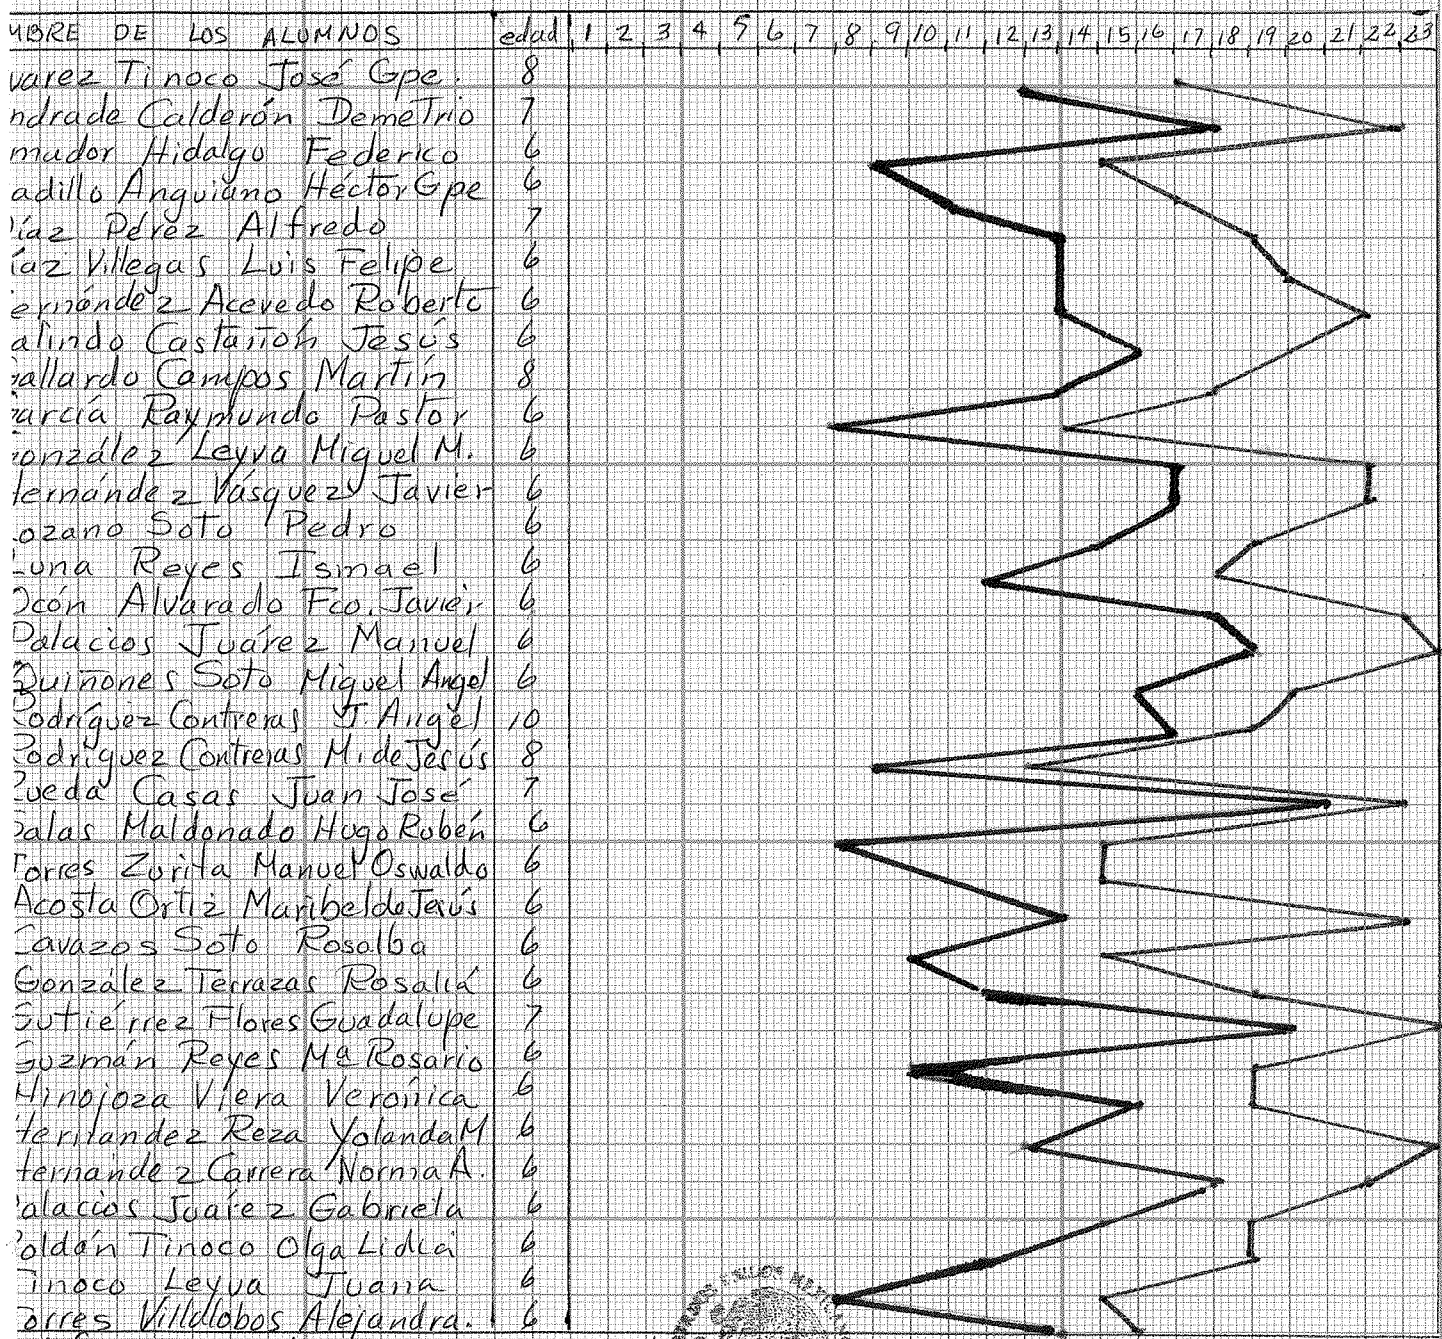 MBRE DE LOS ALUMNOS edad 1 2 3 4 5 6 7 8 9 10 11 12 13 14 15 16 17 18 19 20 21 22 23
varez Tinoco José Gpe. 8
ndrade Calderón Demetrio 7
mador Hidalgo Federico 6
adillo Anguiano Héctor Gpe 6
íaz Pérez Alfredo 7
íaz Villegas Luis Felipe 6
ernández Acevedo Roberto 6
alindo Castañón Jesús 6
allardo Campos Martín 8
arcía Raymundo Pastor 6
onzález Leyva Miguel M. 6
ernández Vásquez Javier 6
Lozano Soto Pedro 6
Luna Reyes Ismael 6
Ocón Alvarado Fco. Javier 6
Palacios Juárez Manuel 6
Quiñones Soto Miguel Angel 6
Rodríguez Contreras J. Angel 10
Rodríguez Contreras M. de Jesús 8
Rueda Casas Juan José 7
Salas Maldonado Hugo Rubén 6
Torres Zurita Manuel Oswaldo 6
Acosta Ortiz Maribel de Jesús 6
Cavazos Soto Rosalba 6
González Terrazas Rosalía 6
Gutiérrez Flores Guadalupe 7
Guzmán Reyes Mª Rosario 6
Hinojoza Viera Verónica 6
Hernández Reza Yolanda M 6
Hernández Carrera Norma A. 6
alacios Juárez Gabriela 6
oldán Tinoco Olga Lidia 6
Tinoco Leyva Juana 6
orres Villalobos Alejandra. 6